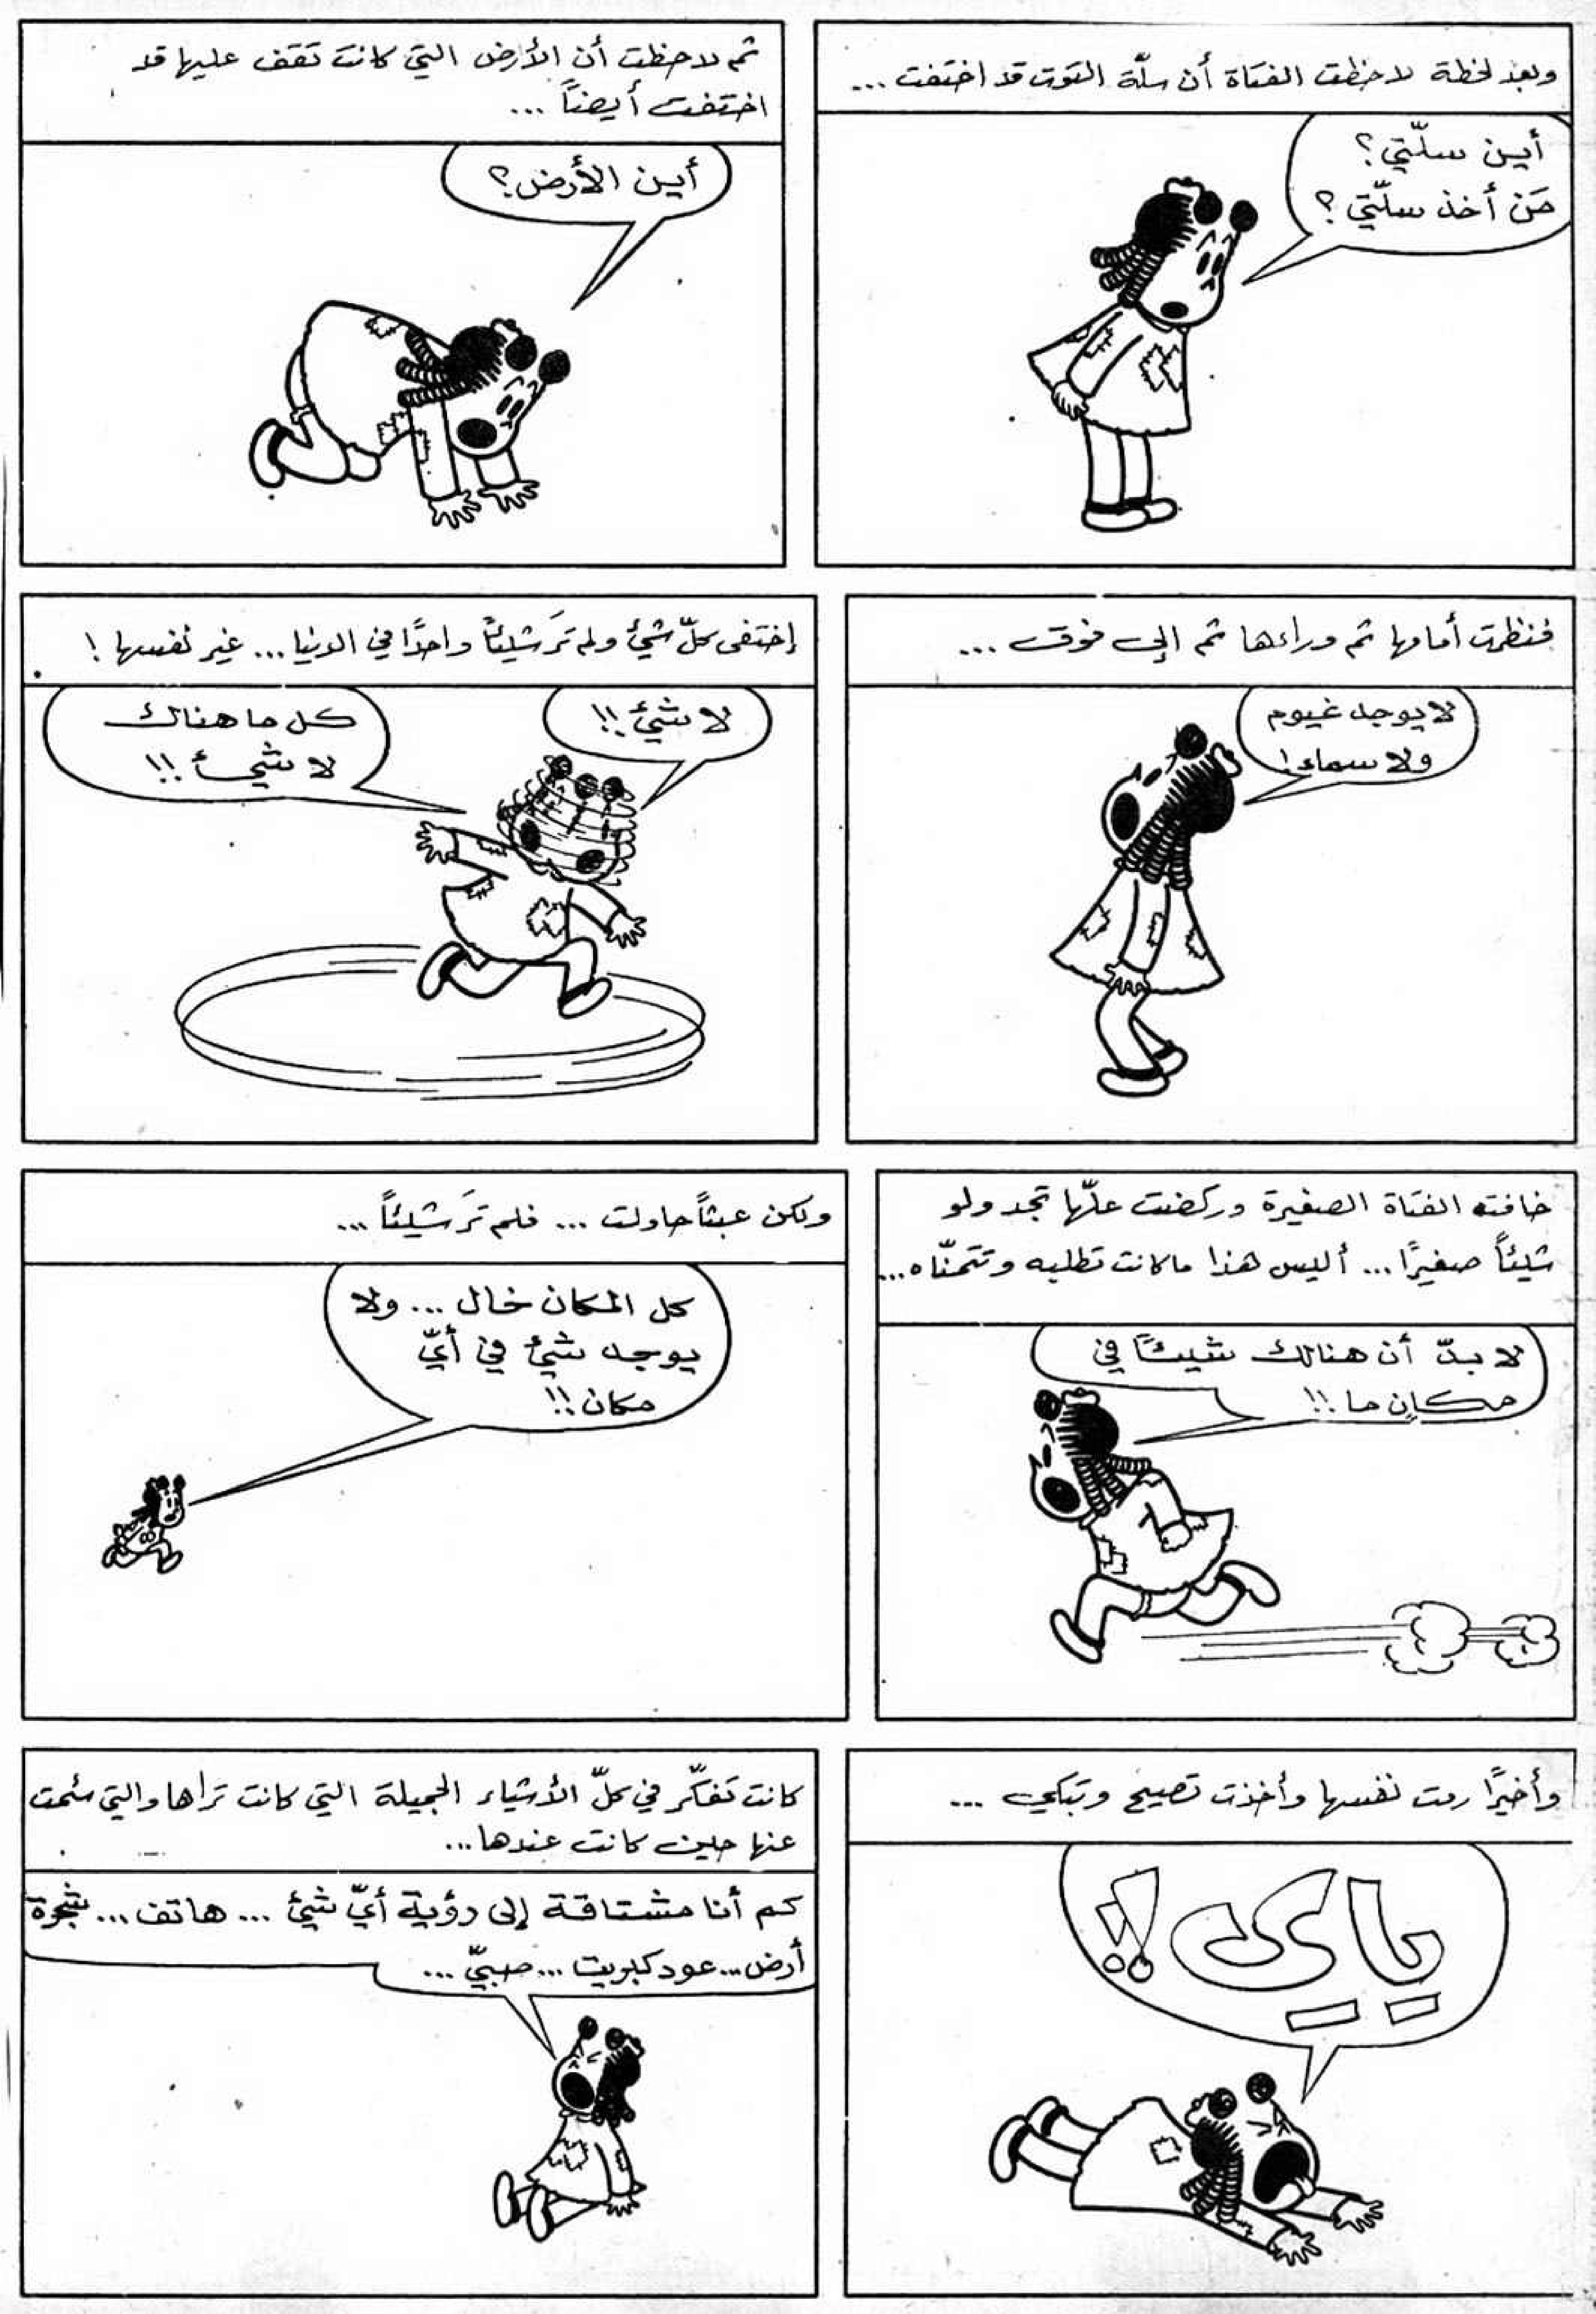 وبعد لحظة لاحظت الفتاة أن سلّة التوت قد اختفت ...
أين سلّتي؟
مَن أخذ سلّتي؟
ثم لاحظت أن الأرض التي كانت تقف عليها قد
اختفت أيضاً ...
أين الأرض؟
فنظرت أمامها ثم وراءها ثم إلى فوق ...
لا يوجد غيوم
ولا سماء!
إختفى كلّ شيئ ولم تَر شيئاً واحدًا في الدنيا ... غير نفسها !
لا شيئ !!
كل ما هناك
لا شيئ !!
خافت الفتاة الصغيرة وركضت علّها تجد ولو
شيئاً صغيرًا ... أليس هذا ما كانت تطلبه وتتمنّاه ...
لا بدّ أن هنالك شيئاً في
مكانٍ ما !!
ولكن عبثاً حاولت ... فلم تَر شيئاً ...
كل المكان خال ... ولا
يوجد شيئ في أيّ
مكان !!
وأخيرًا رمت نفسها وأخذت تصيح وتبكي ...
ياي !!
كانت تفكّر في كلّ الأشياء الجميلة التي كانت تراها والتي سئمت
عنها حين كانت عندها ...
كم أنا مشتاقة إلى رؤية أيّ شيئ ... هاتف ... شجرة
أرض ... عود كبريت ... صبيّ ...